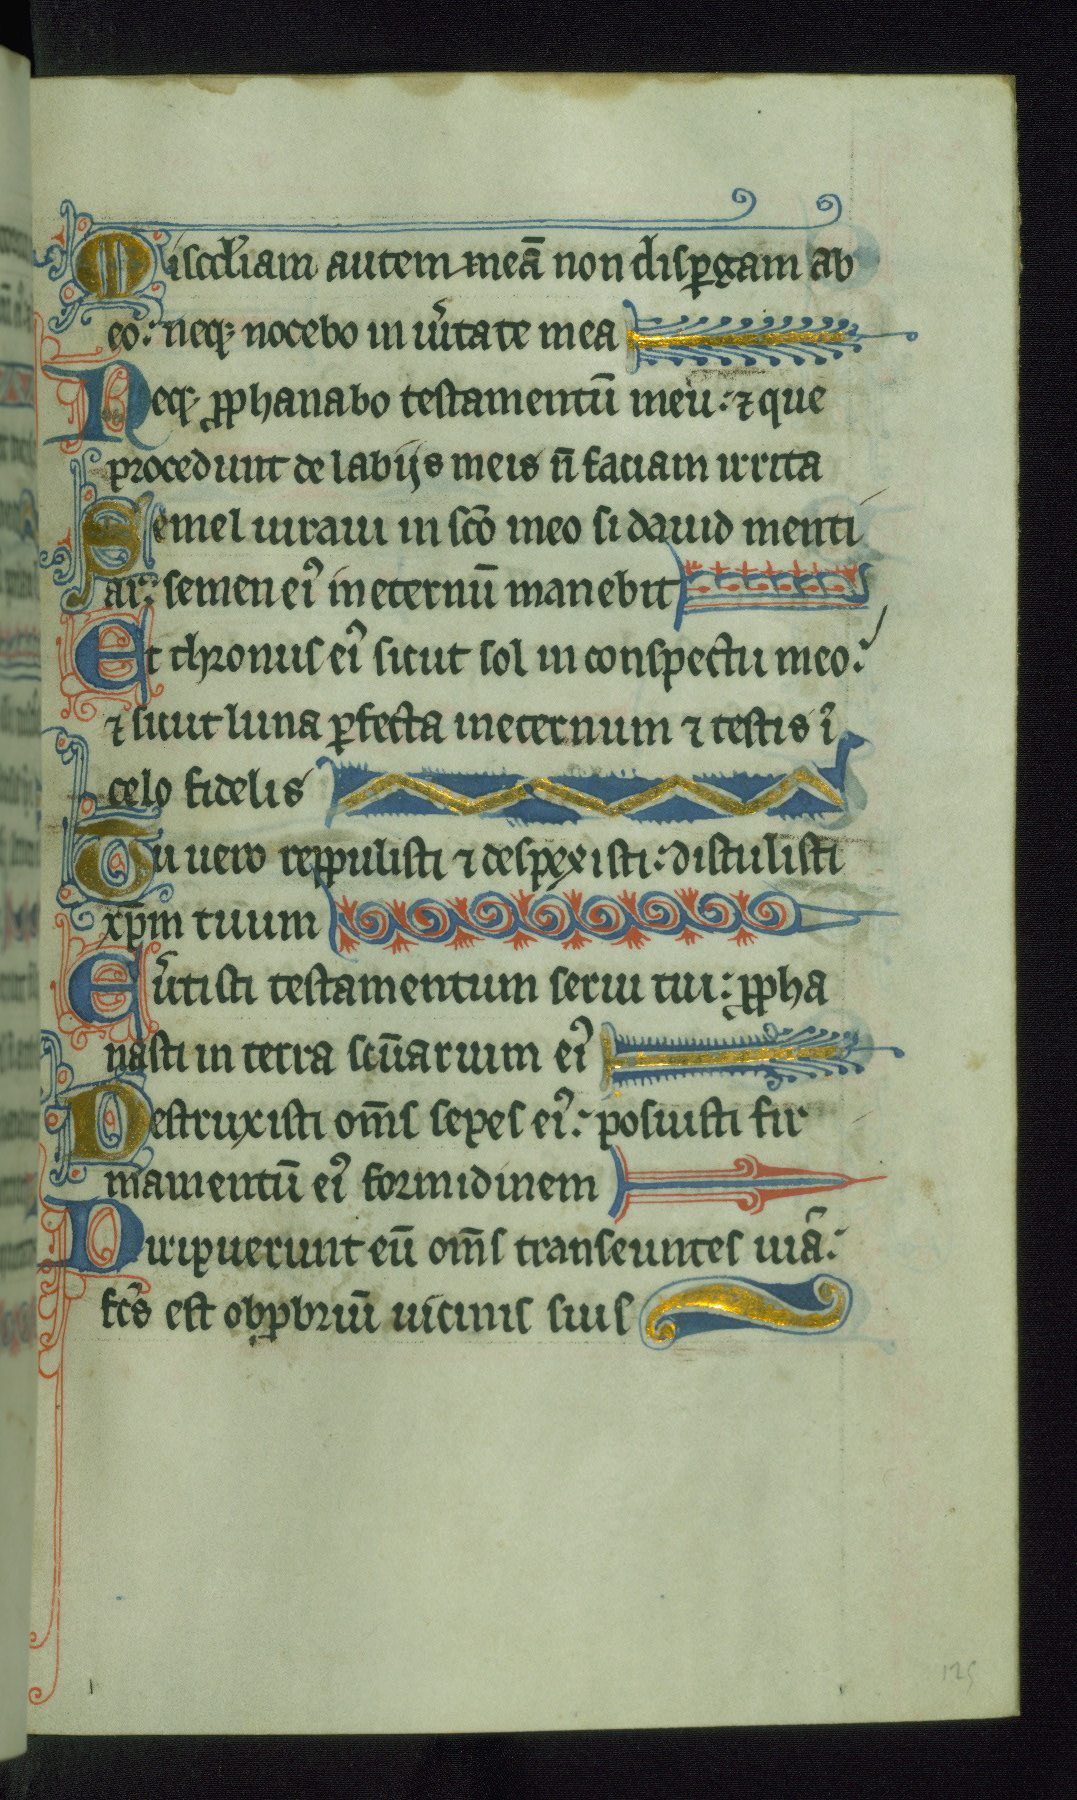 Miscd̕iam autem meā non disp̱gam ab
eo: neqꝫ nocebo in ũitate mea
Neqꝫ ꝓphanabo testamentū meū: ⁊ que
procedunt de labijs meis ñ faciam irrita
Semel iuraui in sc̄o meo si dauid menti
ar: semen ei᷒ in eternū manebit
Et thronus ei᷒ sicut sol in conspectu meo:
⁊ sicut luna ꝑfecta in eternum ⁊ testis ī
celo fidelis
Tu uero reppulisti ⁊ despexisti: distulisti
xp̄m tuum
Eũtisti testamentum serui tui: ꝓpha
nasti in terra sc̄uarium ei᷒
Destruxisti om̄s sepes ei᷒: posuisti fir
mamentū ei᷒ formidinem
Diripuerunt eū om̄s transeuntes uiā:
fc̄s est obꝓbriū uicinis suis
125